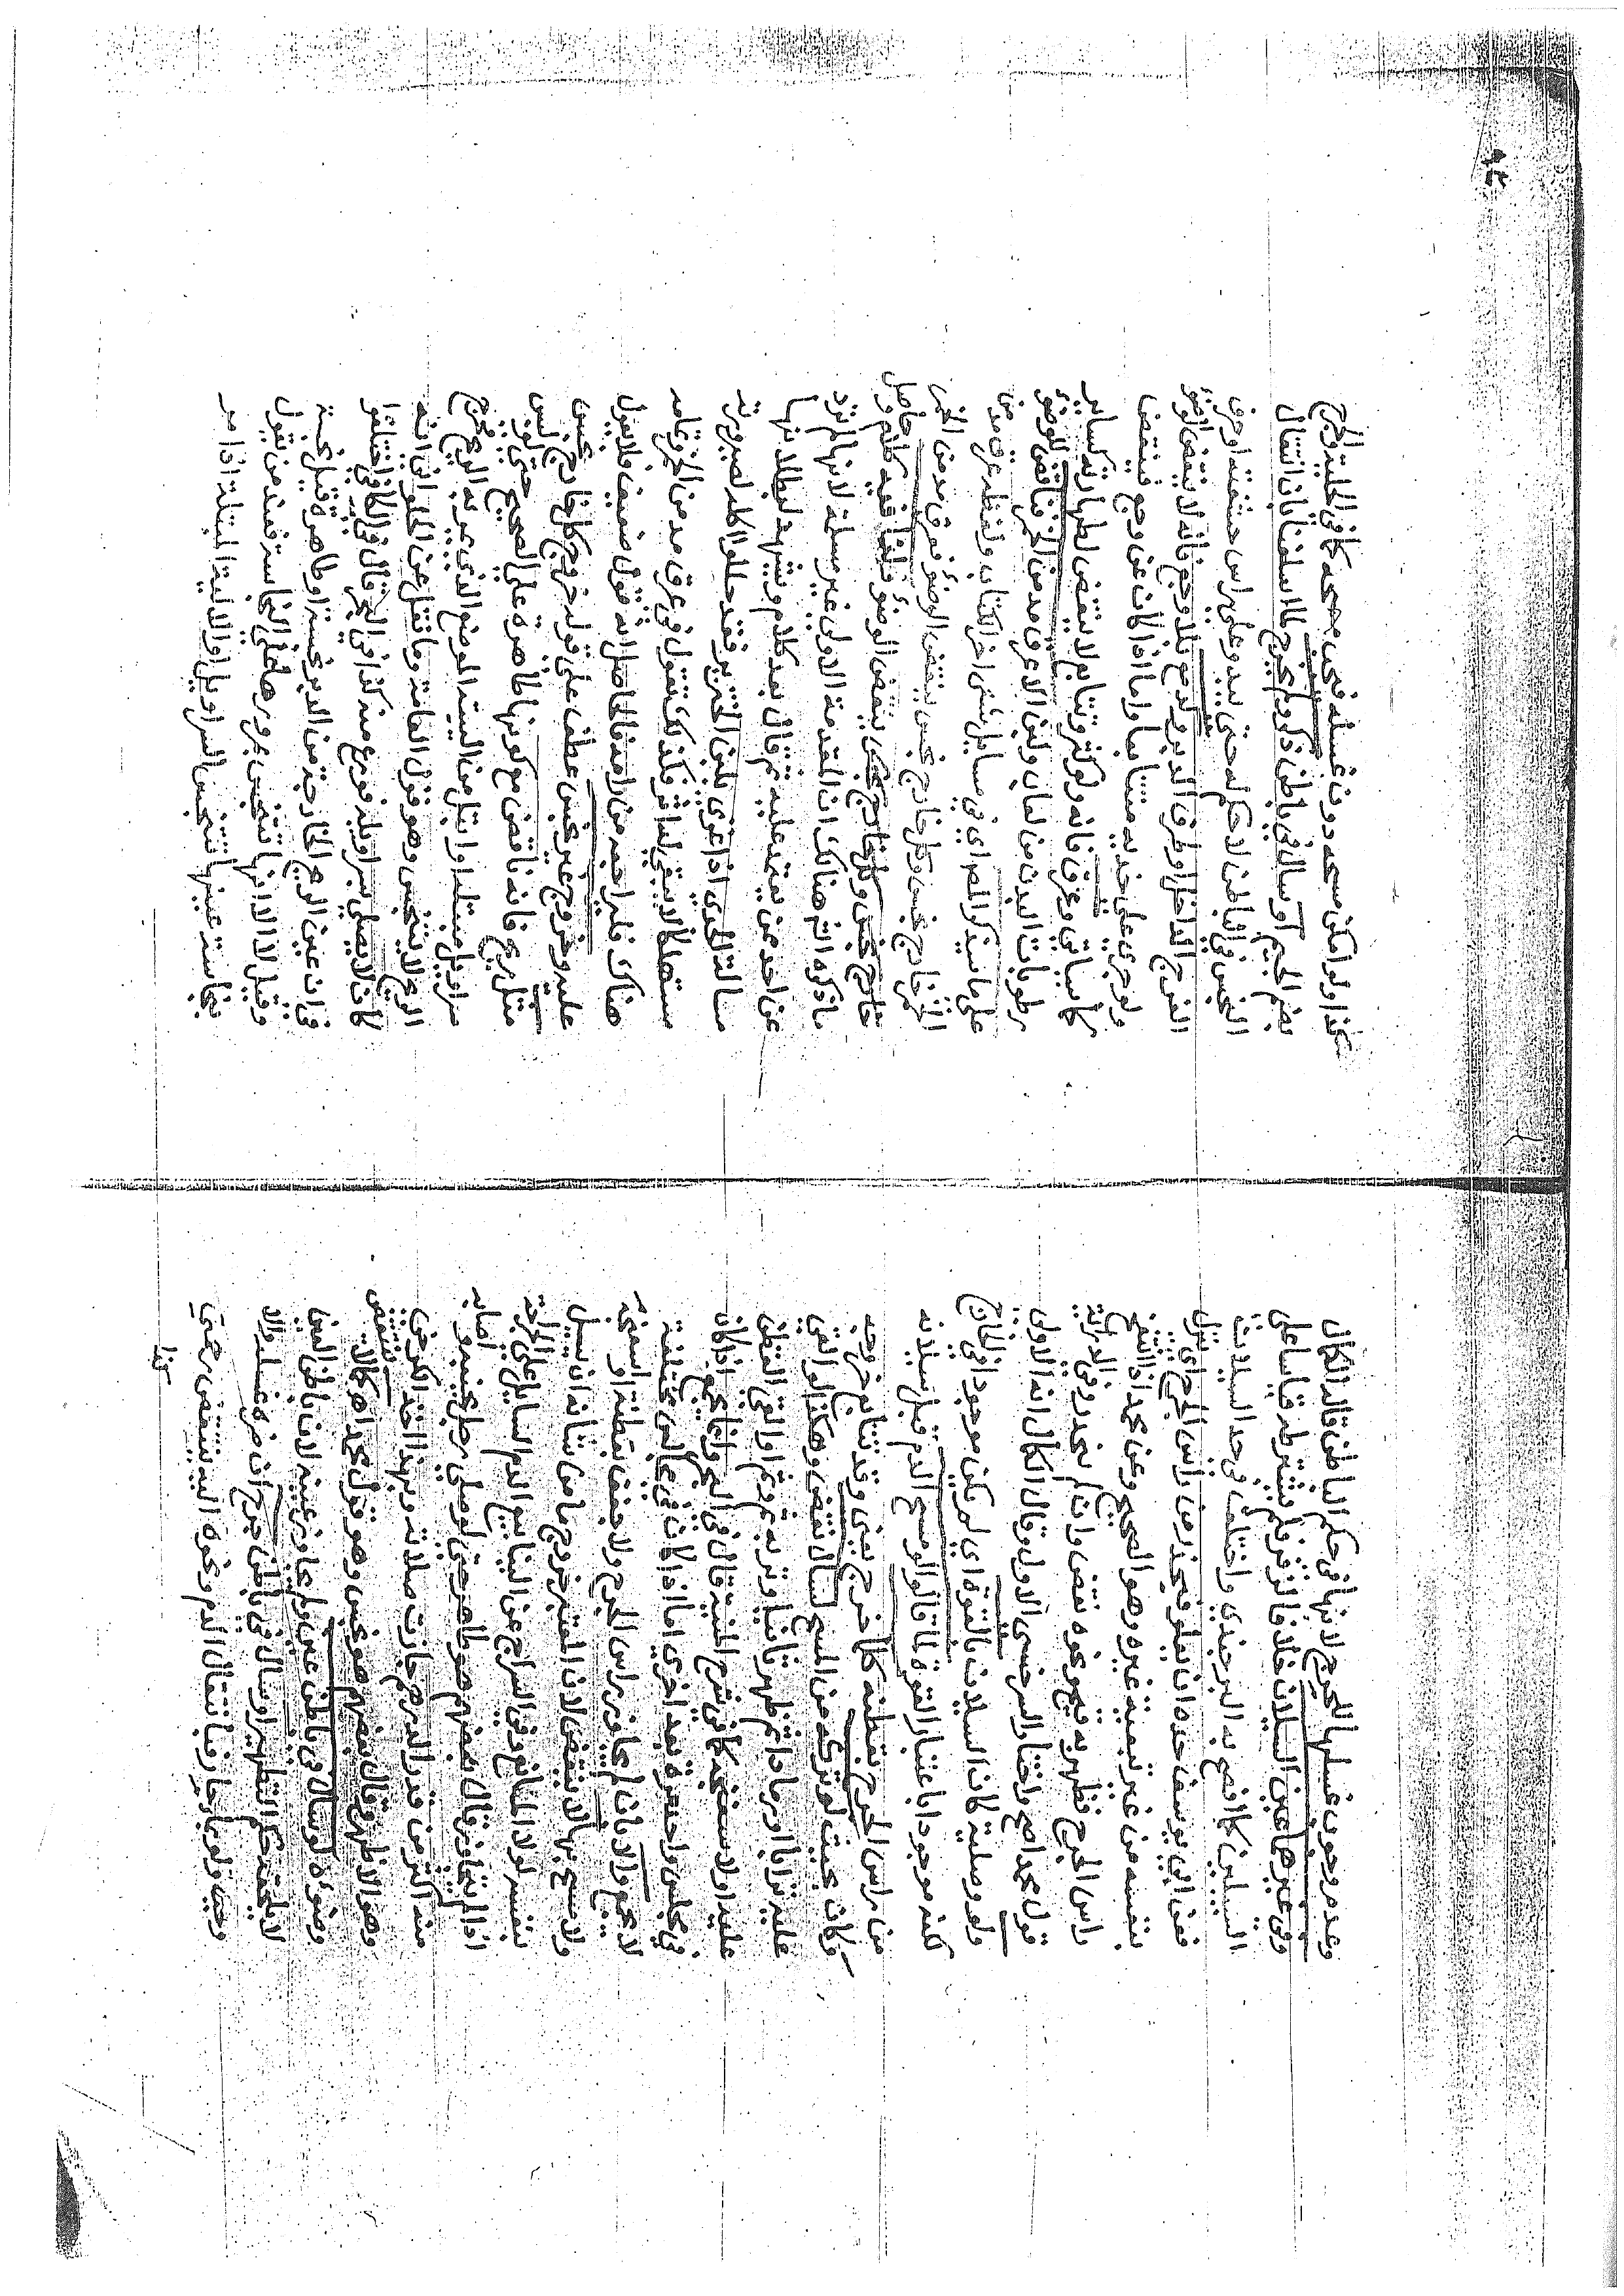 وعدمه وجوب غسلها للحرج لا انها في حكم الباطن قاله الكمال
وفي غيرهما عين السيلان خلافا لزفر فلم يشترطه قياسا على
السبيلين كما افصح به البرجندي واختلف في حد السيلان
فعن ابي يوسف حده ان يعلو فينحدر من راس الجرح اي ينزل
بنفسه من غير تبعية غيره وهو الصحيح وعن محمد اذا انتفخ
راس الجرح فظهر به قيح ونحوه نقض وان لم ينحدر وفي الدراية
قول محمد اصح واختار السرخسي الاول وقال الكمال انه الاولى
ولو وصلية كان السيلان بالقوة اي لم يكن موجودا في الخارج
لكنه موجودا باعتبار القوة لما قالوا لو مسح الدم قبل سيلانه
من راس الجرح بقطنه كلما خرج يعني وقد تتابع خروجه
وكان بحيث لو تركه من المسح لسال نقض وهكذا لو القى
عليه ترابا او رمادا ثم ظهر ثانيا وتربه ثم وثم او القى القطن
عليه اولا سفنجة كما في شرح المنية قال في البحر وانما يجمع اذا كان
في مجلس واحد مرة بعد اخرى اما اذا كان في مجالس مختلفة
لا يجمع والا بان لم يتجاوز راس الجرح ولا جفف بقطنة او اسفنجة
ولا مسح بها لا ينقض لان المعتبر خروج ما من شانه ان يسيل
بنفسه لولا المانع وفي السراج عن الينابيع الدم السايل على الجراحة
اذا لم يتجاوز قال بعضهم هو طاهر حتى لو صلى رجل بجنبه واصابه
منه اكثر من قدر الدرهم جازت صلاته وبهذا اخذ الكرخي
وهو الاظهر وقال بعضهم هو نجس وهو قول محمد اه كما لا ينتقض
وضوءه لو سال في باطن عين ولم يتجاوز عينه لان باطن العين
لا يلحقه حكم التطهير او سال في باطن جرح ان ضره غسله والا
وصل ولو بالربط وبانتقال الدم ونحوه اليه ينتقض رحمتي
كذا
كذا ولو امكن مسحه دون غسله فحين صحه كما في الحلية والجرح
بضم الجيم او سال في باطن ذكر ولم يخرج لما اسلفنا بان انتقال
النجس في الباطن لا حكم له حتى يبدو على راس حشفته او حرف
الفرج الداخل او طرف الدبر ولدمع بلا وجع فانه لا ينقض الوضوء
ولو جرى على خديه متتابعا واما اذا كان عن وجع فينقض
كما سياتي وعرق فانه ولو كثر وتتابع لا ينقض لطهارته كساير
رطوبات البدن من لعاب ولبن الا عرق مدمن الخمر فناقض للوضوء
على ما سيذكره المص اي في مسايل شتى اخر الكتاب ولفظه عرق مدمن
الخمر خارج نجس وكل خارج نجس ينقض الوضوء فعرق مدمن الخمر
خارج نجس وكل خارج نجس ينقض الوضوء قلنا فيه كلام وحاصل
ما ذكره الشرح هناك ان المقدمة الاولى غير مسلمة لانها لم ترد
عن احد ممن يعتمد عليه ثم قال بعد كلام ويشهد لبطلانها
مسالة الجدي اذا غذي بلبن الخنزير فقد حللوا اكله لصيرورته
مستهلكا لا يبقى له اثر فكذلك نقول في عرق مدمن الخمر وتمامه
هناك فليراجع من رامه فالحاصل انه قول ضعيف ولا يعول
عليه وخروج غير نجس عطف على قوله خروج كل خارج نجس
مثل ريح فانه ناقض مع كونها طاهرة على الصحيح حتى لو لبس
سراويل مبتلا او ابتل من اليسته الموضع الذي يمر به الريح فخرج
الريح لا يتنجس وهو قول العامة وما نقل عن الحلواني انه
كان لا يصلي بسراويله فورع منه كذا في البحر قال في الكافي اختلفوا
في ان عين الريح الخارجة من الدبر نجسة او طاهرة قيل نجسة
وقيل لا الا انها تتنجس بمرورها على النجاسة فمنهم من يقول
نجاسة عينها تنجس السراويل او الالية المبتلة اذا مر